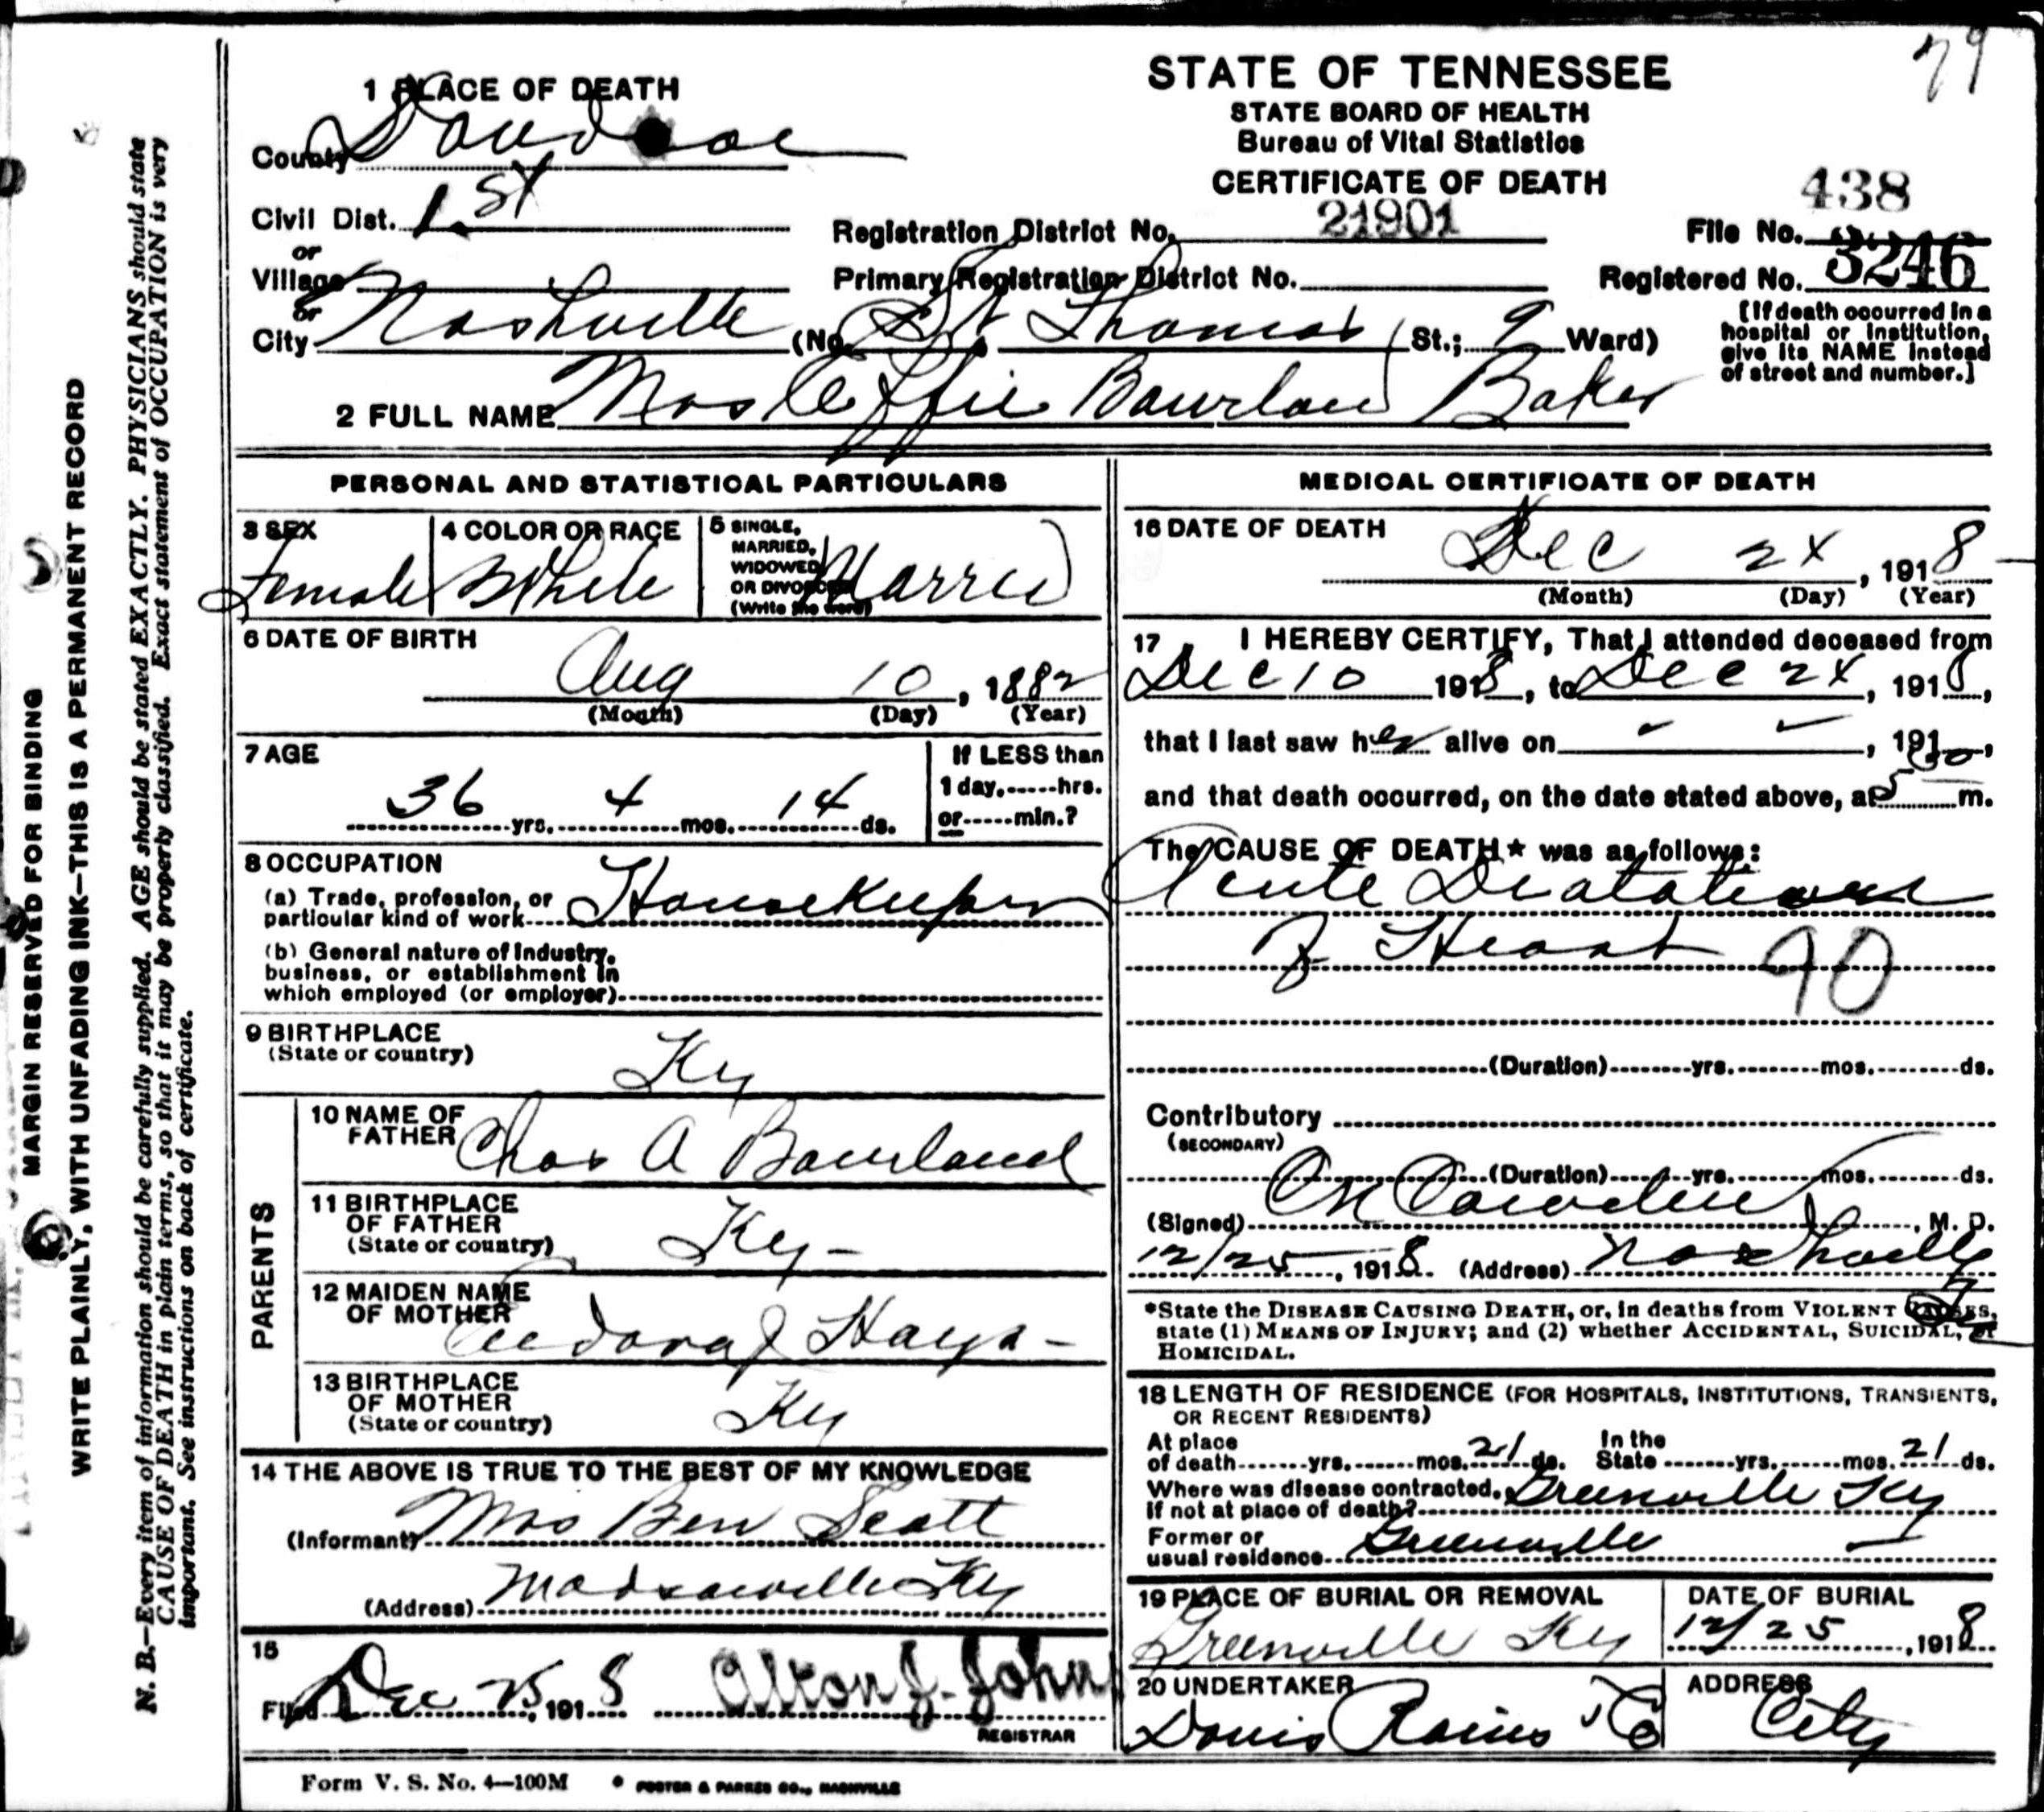 79
1 PLACE OF DEATH
STATE OF TENNESSEE
STATE BOARD OF HEALTH
Bureau of Vital Statistics
CERTIFICATE OF DEATH
County
Civil Dist. 1st
or
Village
or
City Nashville (No. St. Thomas St.; 9 Ward)
Registration District No. 21901
File No. 438
Primary Registration District No.
Registered No. 3246
[If death occurred in a
hospital or institution,
give its NAME instead
of street and number.]
2 FULL NAME Mrs Effie Bourland Baker
PERSONAL AND STATISTICAL PARTICULARS
3 SEX Female
4 COLOR OR RACE White
5 SINGLE,
MARRIED,
WIDOWED,
OR DIVORCED
(Write the word) Married
6 DATE OF BIRTH
Aug 10, 1882
(Month) (Day) (Year)
7 AGE
36 yrs. 4 mos. 14 ds.
If LESS than
1 day,......hrs.
or......min.?
8 OCCUPATION
(a) Trade, profession, or
particular kind of work Housekeeper
(b) General nature of Industry,
business, or establishment in
which employed (or employer)
9 BIRTHPLACE
(State or country) Ky
PARENTS
10 NAME OF
FATHER Chas A Bourland
11 BIRTHPLACE
OF FATHER
(State or country) Ky -
12 MAIDEN NAME
OF MOTHER Hays -
13 BIRTHPLACE
OF MOTHER
(State or country) Ky
14 THE ABOVE IS TRUE TO THE BEST OF MY KNOWLEDGE
(Informant) Mrs Ben Scott
(Address) Madisonville Ky
15
Filed Dec 25, 1918 Alton J. John
REGISTRAR
MEDICAL CERTIFICATE OF DEATH
16 DATE OF DEATH
Dec 24, 1918
(Month) (Day) (Year)
17 I HEREBY CERTIFY, That I attended deceased from
Dec 10 1918, to Dec 24, 1918,
that I last saw her alive on , 191 ,
and that death occurred, on the date stated above, at 5 m.
The CAUSE OF DEATH* was as follows:
Acute Dilatation
of Heart 90
(Duration) yrs. mos. ds.
Contributory
(SECONDARY)
(Duration) yrs. mos. ds.
(Signed) , M. D.
12/25, 1918. (Address) Nashville
*State the DISEASE CAUSING DEATH, or, in deaths from VIOLENT CAUSES,
state (1) MEANS OF INJURY; and (2) whether ACCIDENTAL, SUICIDAL, or
HOMICIDAL.
18 LENGTH OF RESIDENCE (FOR HOSPITALS, INSTITUTIONS, TRANSIENTS,
OR RECENT RESIDENTS)
At place
of death yrs. mos. 21 ds.
In the
State yrs. mos. 21 ds.
Where was disease contracted,
If not at place of death? Greenville Ky
Former or
usual residence Greenville
19 PLACE OF BURIAL OR REMOVAL
Greenville Ky
DATE OF BURIAL
12/25, 1918
20 UNDERTAKER
ADDRESS
City
Form V. S. No. 4—100M
FOSTER & PARKES CO., NASHVILLE
MARGIN RESERVED FOR BINDING
WRITE PLAINLY, WITH UNFADING INK—THIS IS A PERMANENT RECORD
N. B.—Every item of information should be carefully supplied. AGE should be stated EXACTLY. PHYSICIANS should state
CAUSE OF DEATH in plain terms, so that it may be properly classified. Exact statement of OCCUPATION is very
important. See instructions on back of certificate.